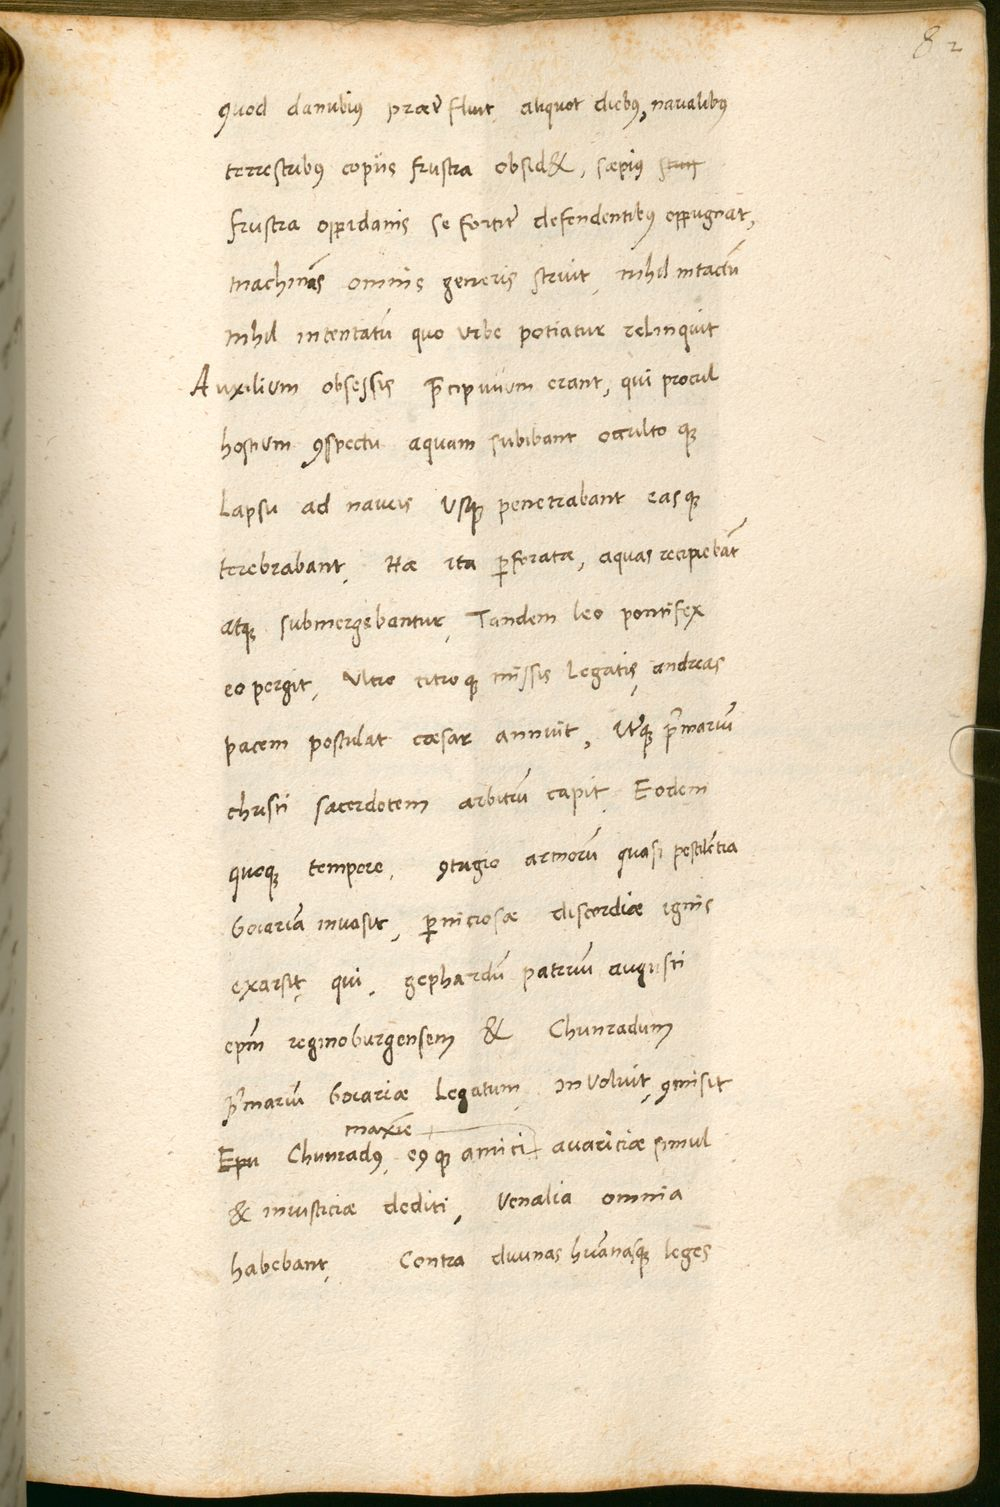 82
quod danubius præt' fluit aliquot diebꝰ, naualibꝰ
terrestribꝰ copiis frustra obsid&, sæpius struit
frustra oppidanis se fortit' defendentibꝰ oppugnat,
machinãs omnis generis struit, nihil intactũ
nihil intentatũ quo urbe potiatur relinquit
Auxilium obsessis p̃cipuuum erant, qui procul
hostium ꝯspectu aquam subibant occulto qꝫ
lapsu ad naueis usqꝫ penetrabant easqꝫ
terebrabant, Hæ ita ꝑforatæ, aquas recipiebãt
atqꝫ submergebantur, Tandem leo pontifex
eo pergit, Vltro citroqꝫ missis legatis, andreas
pacem postulat cæsar annuit, Vt'qꝫ p'marium̃
christi sacerdotem arbitrũ capit, Eodem
quoqꝫ tempore, ꝯtagio armorũ quasi pestilẽtia
boiariã inuasit, ꝑniciosæ discordiæ ignis
exarsit, qui, gephardũ patruũ augusti
epm̃ reginoburgensem & Chunradum
p'mariũ boiariæ legatum, inuoluit, ꝯmisit
maxĩe
Epu Chunradꝰ, eꝰqꝫ amici auariciæ simul
& iniusticiæ dediti, Venalia omnia
habebant, Contra diuinas hũanasqꝫ leges